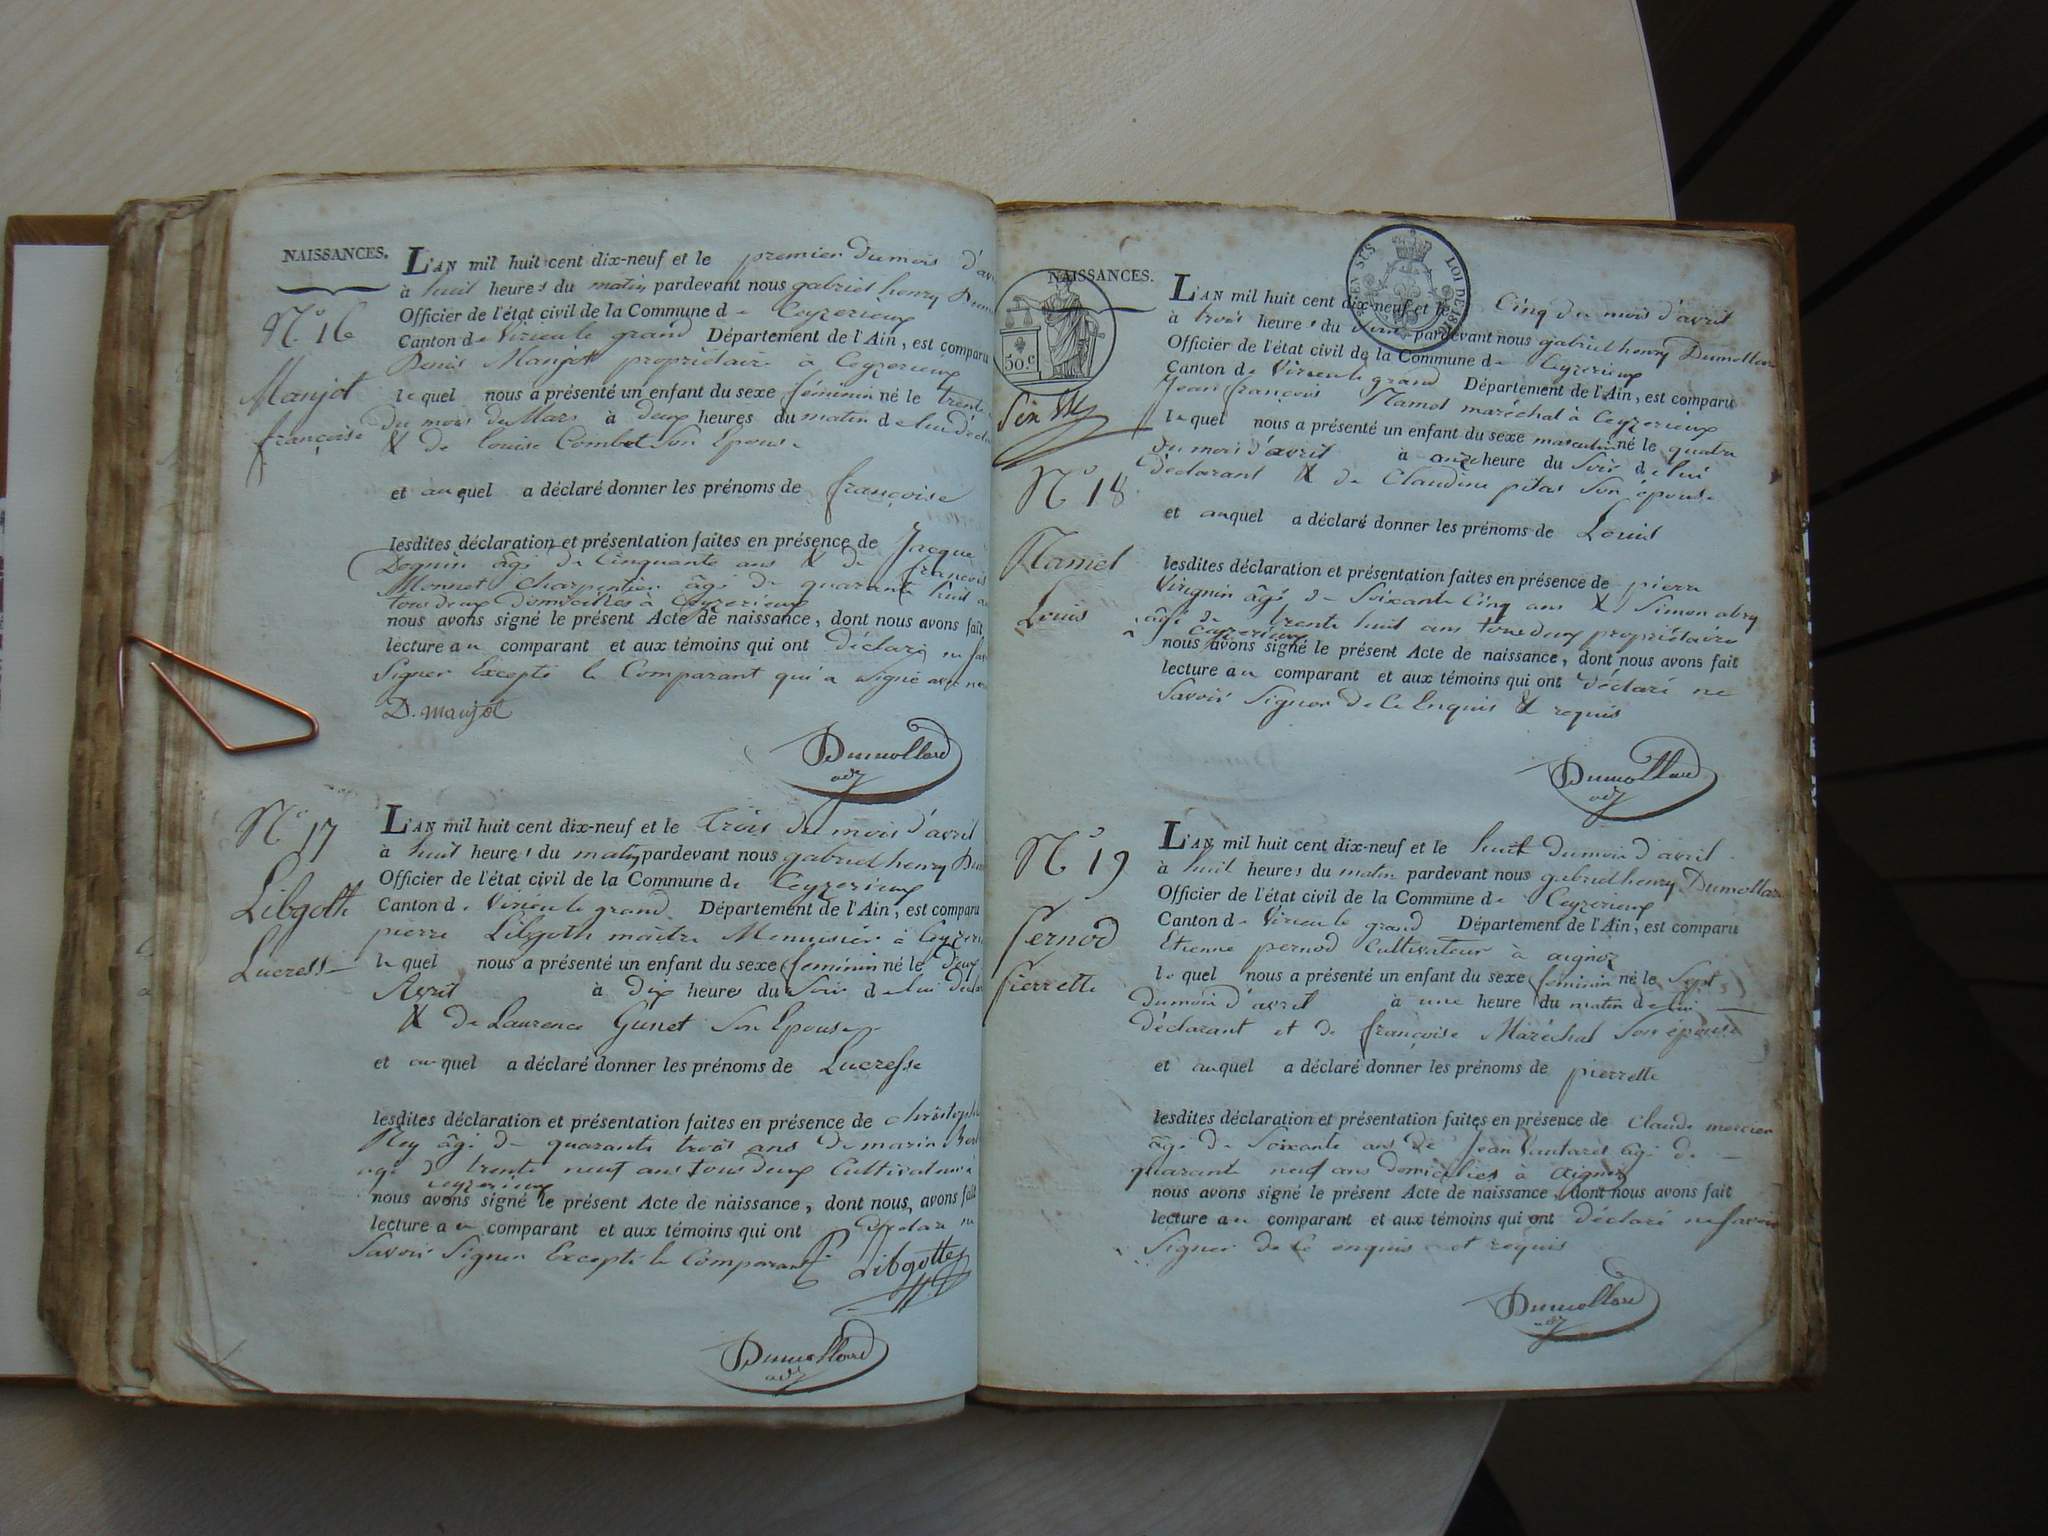 NAISSANCES.
N.° 16
Manjot
françoise
L'AN mil huit cent dix-neuf et le premier du mois d'av
à huit heures du matin pardevant nous gabriel henry Dum
Officier de l'état civil de la Commune de Ceyzerieux
Canton de Virieu le grand Département de l'Ain, est comparu
Denis Manjot propriétaire à Ceyzerieux
lequel nous a présenté un enfant du sexe féminin né le trente
du mois de Mars à deux heures du matin de lui décla
& de Louise Combet son Epouse
et auquel a déclaré donner les prénoms de françoise
lesdites déclaration et présentation faites en présence de Jacque
Dognin âgé de Cinquante ans & de françois
Monnet Charpentier âgé de quarante huit a
tous deux domiciliés à Ceyzerieux
nous avons signé le présent Acte de naissance, dont nous avons fait
lecture au comparant et aux témoins qui ont déclaré ne sav
Signer Excepté le Comparant qui a signé avec no
D. manjot
Dumollard
adj
N° 17
Libgoth
Lucresse
L'AN mil huit cent dix-neuf et le trois du mois d'avril
à huit heures du matin pardevant nous gabriel henry Du
Officier de l'état civil de la Commune de Ceyzerieux
Canton de Virieu le grand Département de l'Ain, est comparu
pierre Libgoth maître Menuisier à Ceyzeri
lequel nous a présenté un enfant du sexe féminin né le deux
Avril à dix heures du Soir de lui déclar
& de Laurence Gunet son Epouse
et auquel a déclaré donner les prénoms de Lucresse
lesdites déclaration et présentation faites en présence de christophe
Rey âgé de quarante trois ans de marin
agé de trente neuf ans tous deux Cultivateurs à
Ceyzerieux
nous avons signé le présent Acte de naissance, dont nous avons fait
lecture au comparant et aux témoins qui ont déclaré ne
Savoir Signer Excepté le Comparant P. Libgotte
Dumollard
adj
NAISSANCES.
50.c
EN SUS LOI DE 1816
N° 18
Mamet
Louis
L'AN mil huit cent dix-neuf et le Cinq du mois d'avril
à trois heures du soir pardevant nous gabriel henry Dumollard
Officier de l'état civil de la Commune de Ceyzerieux
Canton de Virieu le grand Département de l'Ain, est comparu
Jean françois Mamet maréchal à Ceyzerieux
lequel nous a présenté un enfant du sexe masculin né le quatre
du mois d'avril à onze heure du Soir de lui
déclarant & de Claudine pitas son épouse
et auquel a déclaré donner les prénoms de Louis
lesdites déclaration et présentation faites en présence de pierre
Virignin âgé de Soixante Cinq ans & Simon abry
âgé de trente huit ans tous deux propriétaires
à Ceyzerieux
nous avons signé le présent Acte de naissance, dont nous avons fait
lecture au comparant et aux témoins qui ont déclaré ne
Savoir Signer de Ce Enquis & requis
Dumollard
adj
N° 19
Pernod
Pierrette
L'AN mil huit cent dix-neuf et le huit du mois d'avril
à huit heures du matin pardevant nous gabriel henry Dumollard
Officier de l'état civil de la Commune de Ceyzerieux
Canton de Virieu le grand Département de l'Ain, est comparu
Etienne pernod Cultivateur à aignoz
lequel nous a présenté un enfant du sexe féminin né le Sept
du mois d'avril à une heure du matin de lui
déclarant et de françoise Maréchal son épouse
et auquel a déclaré donner les prénoms de pierrette
lesdites déclaration et présentation faites en présence de Claude mercier
âgé de Soixante ans de Jean Vautaret âgé de
quarante neuf ans domiciliés à aignoz
nous avons signé le présent Acte de naissance, dont nous avons fait
lecture au comparant et aux témoins qui ont déclaré ne savoir
Signer de Ce enquis et requis
Dumollard
adj